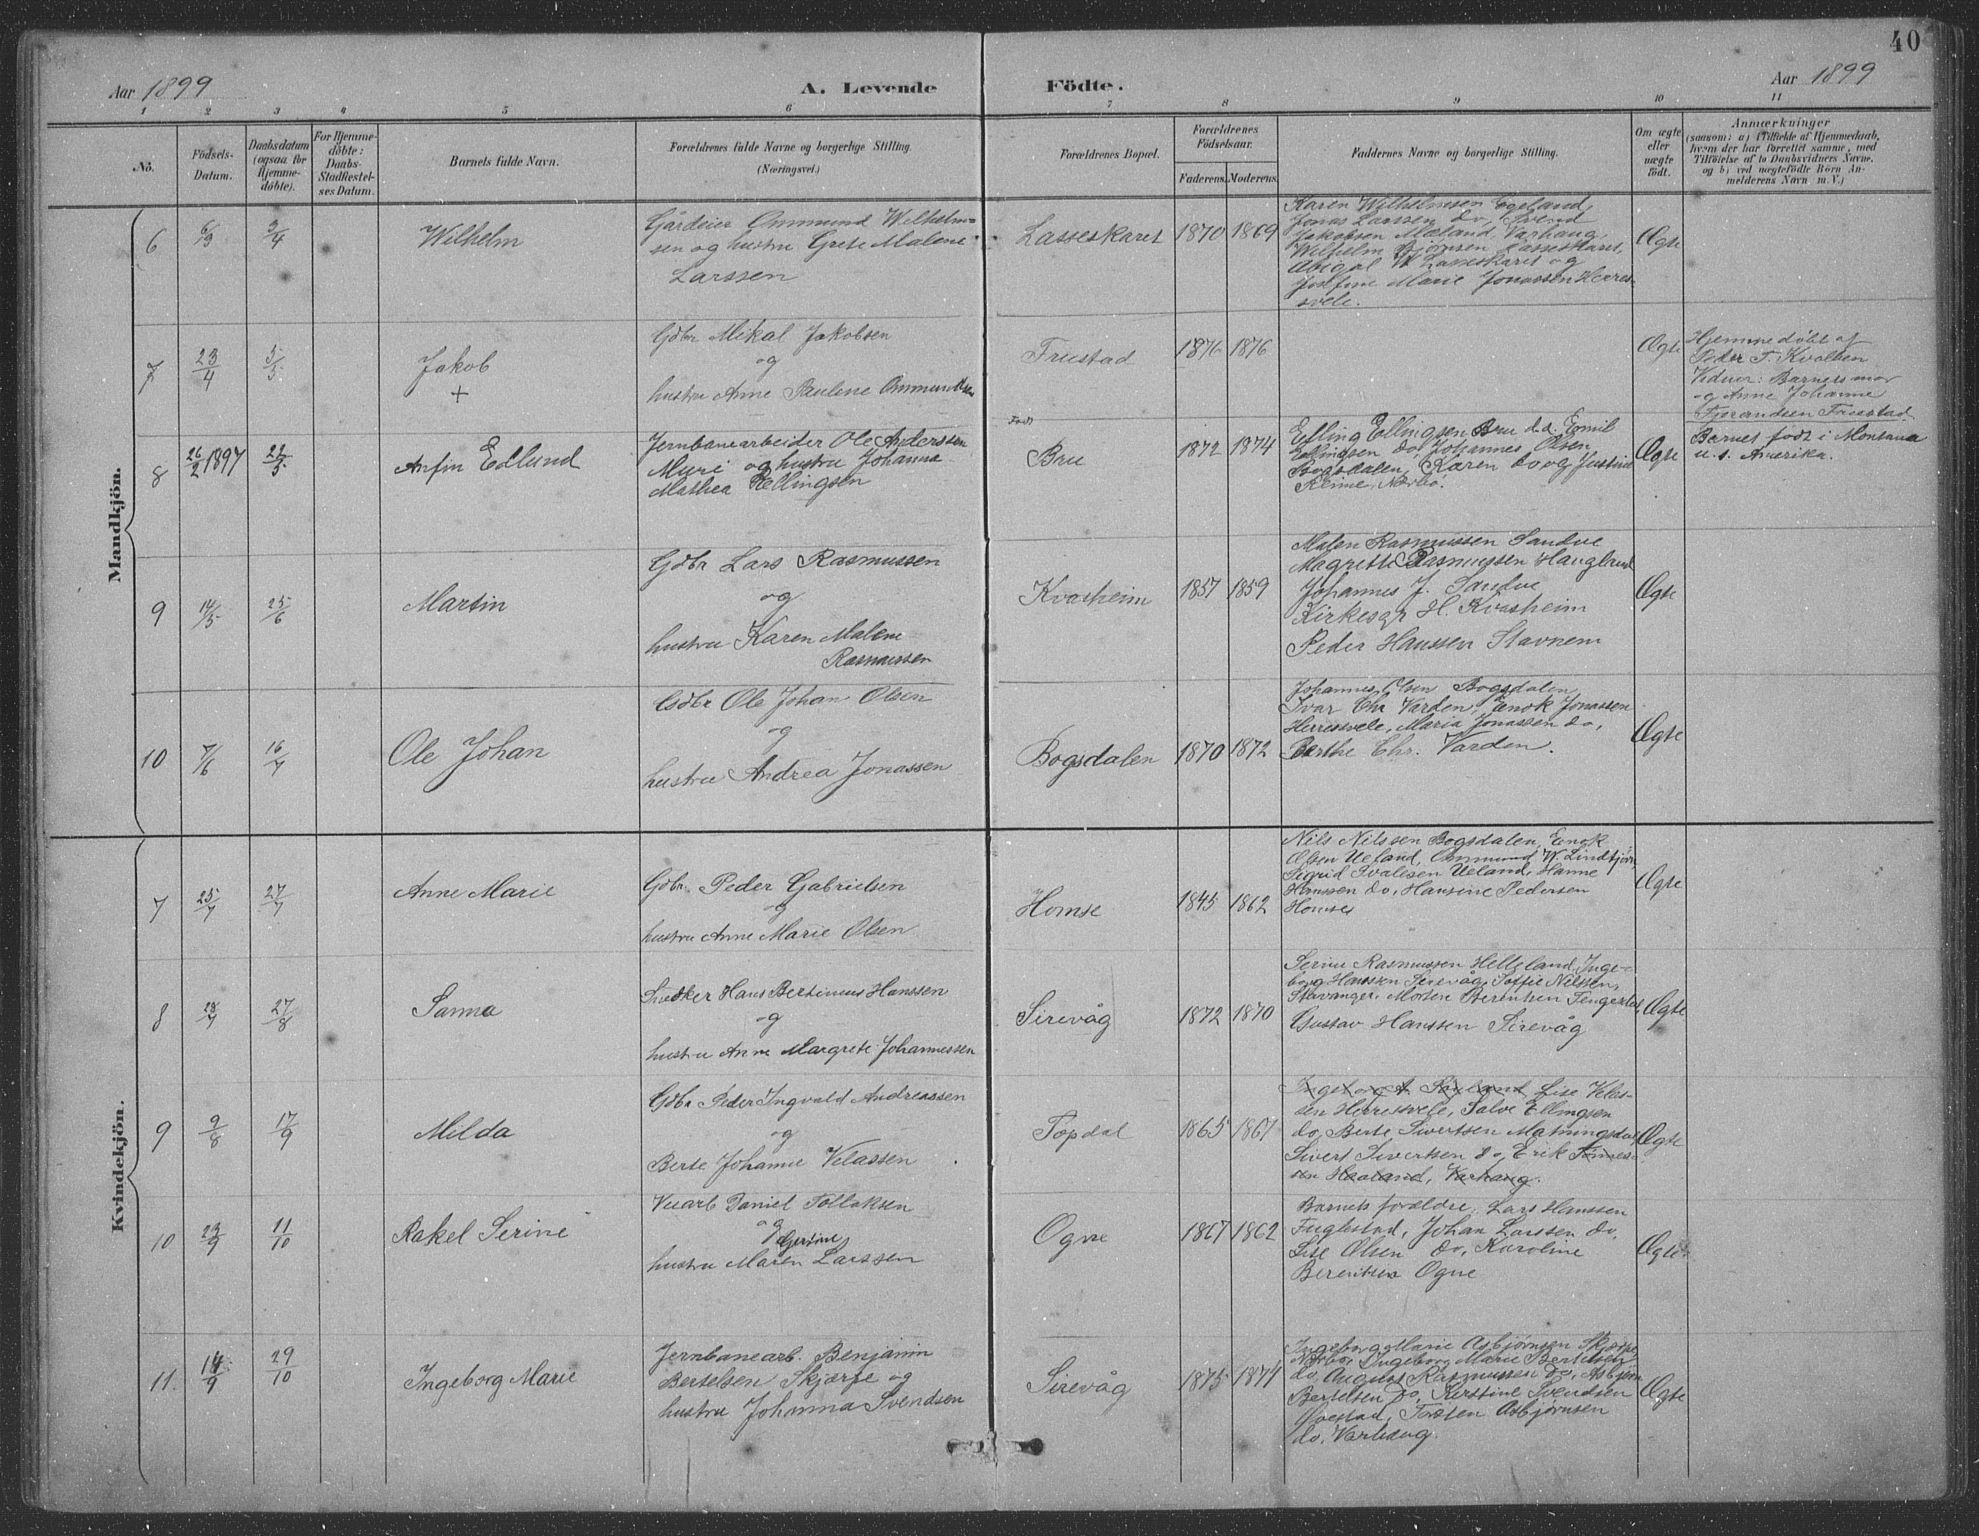 40
Aar 1899
A. Levende
Födte.
Aar 1899
1 2 3 4 5 6 7 8 9 10 11
No.
Födsels-
Datum.
Daabsdatum
(ogsaa for
Hjemme-
döbte).
For Hjemme-
döbte:
Daabs-
Stadfæstel-
ses Datum.
Barnets fulde Navn.
Forældrenes fulde Navne og borgerlige Stilling.
(Næringsvei.)
Forældrenes Bopæl.
Forældrenes
Födselsaar.
Faderens. Moderens.
Faddernes Navne og borgerlige Stilling.
Om ægte
eller
uægte
födt.
Anmærkninger
(saasom: a) i Tilfælde af Hjemmedaab,
hvem der har forrettet samme, med
Tilföielse af to Daabsvidners Navne,
og b) ved uægtefödte Börn An-
melderens Navn m. V.)
Mandkjön.
6
6/3
3/4
Wilhelm
Gårdeier Ommund Wilhelm-
sen og hustru Grete Malene
Larssen
Lasseskaret
1870 1869
Karen Wilhelmsen Egeland,
Jonas Larssen do, Svend
Jakobsen Mæland, Varhaug,
Wilhelm Bjørnsen Lasseskaret,
Abigal W. Lasseskaret og
Josefine Marie Jonassen Herres-
svele.
Ægte
7
23/4
5/5
Jakob
+
Gdbr Mikal Jakobsen
og
hustru Anne Paulene Ommundsen
Fristad
1876 1876
Ægte
Hjemmedöbt af
Peder T. Kvalben
Vidner: Barnets mor
og Anne Johanne
Fristad.
8
26/2 1897
22/5
Anfin Edlund
Jernbanearbeider Ole Anderssen
Muri og hustru Johanna
Mathea Ellingsen
Født
Bru
1872 1874
Elling Ellingsen Bru do. Emil
Ellingsen do, Johannes Olsen
Bogsdalen, Karen do og Justine
Reime, Nærbø.
Ægte
Barnet født i Montana
U. S. Amerika.
9
14/5
25/6
Martin
Gdbr Lars Rasmussen
og
hustru Karen Malene
Rasmussen
Kvasheim
1857 1859
Malen Rasmussen Sandve
Magrette Rasmussen Haugland
Johannes J. Sandve
Kirkesgr H. Kvasheim
Peder Hanssen Stavnem
Ægte
10
7/6
16/7
Ole Johan
Gdbr Ole Johan Olsen
og
hustru Andrea Jonassen
Bogsdalen
1870 1872
Johannes Olsen Bogsdalen,
Ivar Chr Varden, Enok Jonassen
Herresvele, Maria Jonassen do,
Berthe Chr. Varden.
Ægte
Kvindekjön.
7
25/7
27/7
Anne Marie
Gdbr. Peder Gabrielsen
og
hustru Anne Marie Olsen
Homse
1845 1862
Nils Nilssen Bogsdalen, Enok
Olsen Ueland, Ommund W. Lindtjørn
Sigrid Ueland, Hanne
Hanssen do, Hansine Pedersen
Homse
Ægte
8
23/7
27/8
Sanna
Snedker Hans Bertinius Hanssen
og
hustru Anne Margrete Johannessen
Sirevåg
1872 1870
Serine Rasmussen Helleland, Inge-
borg Hanssen Sirevåg, Soffie Nilssen,
Stavanger, Morten Berentsen
Gustav Hanssen Sirevåg
Ægte
9
9/8
17/9
Milda
Gdbr Peder Ingvald Andreassen
og
Berte Johanne Velassen
Topdal
1865 1867
Lise Velas-
sen Herresvele, Salve Ellingsen
do, Berte Sivertsen Matningsdal,
Sivert Sivertsen do, Erik Tønnes-
sen Haaland, Varhaug.
Ægte
10
23/9
11/10
Rakel Serine
Vuarb Daniel Tollaksen
og
Gertine
hustru Maren Larssen
Ogne
1867 1862
Barnets forældre, Lars Hanssen
Fuglestad, Johan Larssen do,
Lise Olsen do, Karoline
Berentsen Ogne
Ægte
11.
14/9
29/10
Ingeborg Marie
Jernbanearb. Benjamin
Bertelsen Skjærpe og
hustru Johanna Svendsen
Sirevåg
1875 1874
Ingeborg Marie Asbjørnsen Skjærpe
Nærbø, Ingeborg Marie Bertelsen
do, August Rasmussen do, Asbjørn
Bertelsen do, Kirstine Svendsen
Torsten Asbjørnsen
do, Varhaug.
Ægte